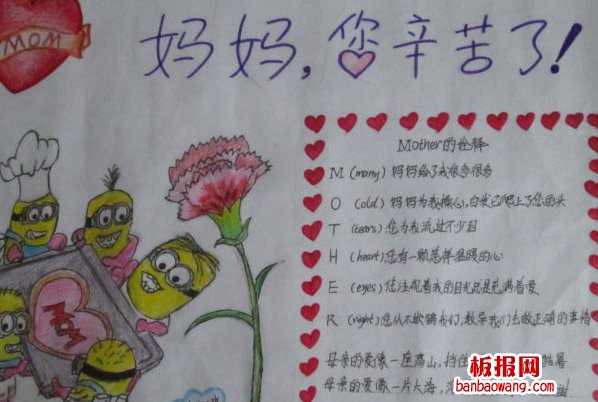 MOM
妈妈,您辛苦了!
Mother的诠释
M (many) 妈妈给了我很多很多
O (old) 妈妈为我操心,白发已爬上了您的头
T (tears) 您为我流过不少泪
H (heart) 您有一颗慈祥温暖的心
E (eyes) 您注视着我的目光总是充满着爱
R (right) 您从不欺骗我们,教导我们去做正确的事情
母亲的爱像一座高山,挡住
母亲的爱像一片大海,
MOM
板报网
banbaowang.com